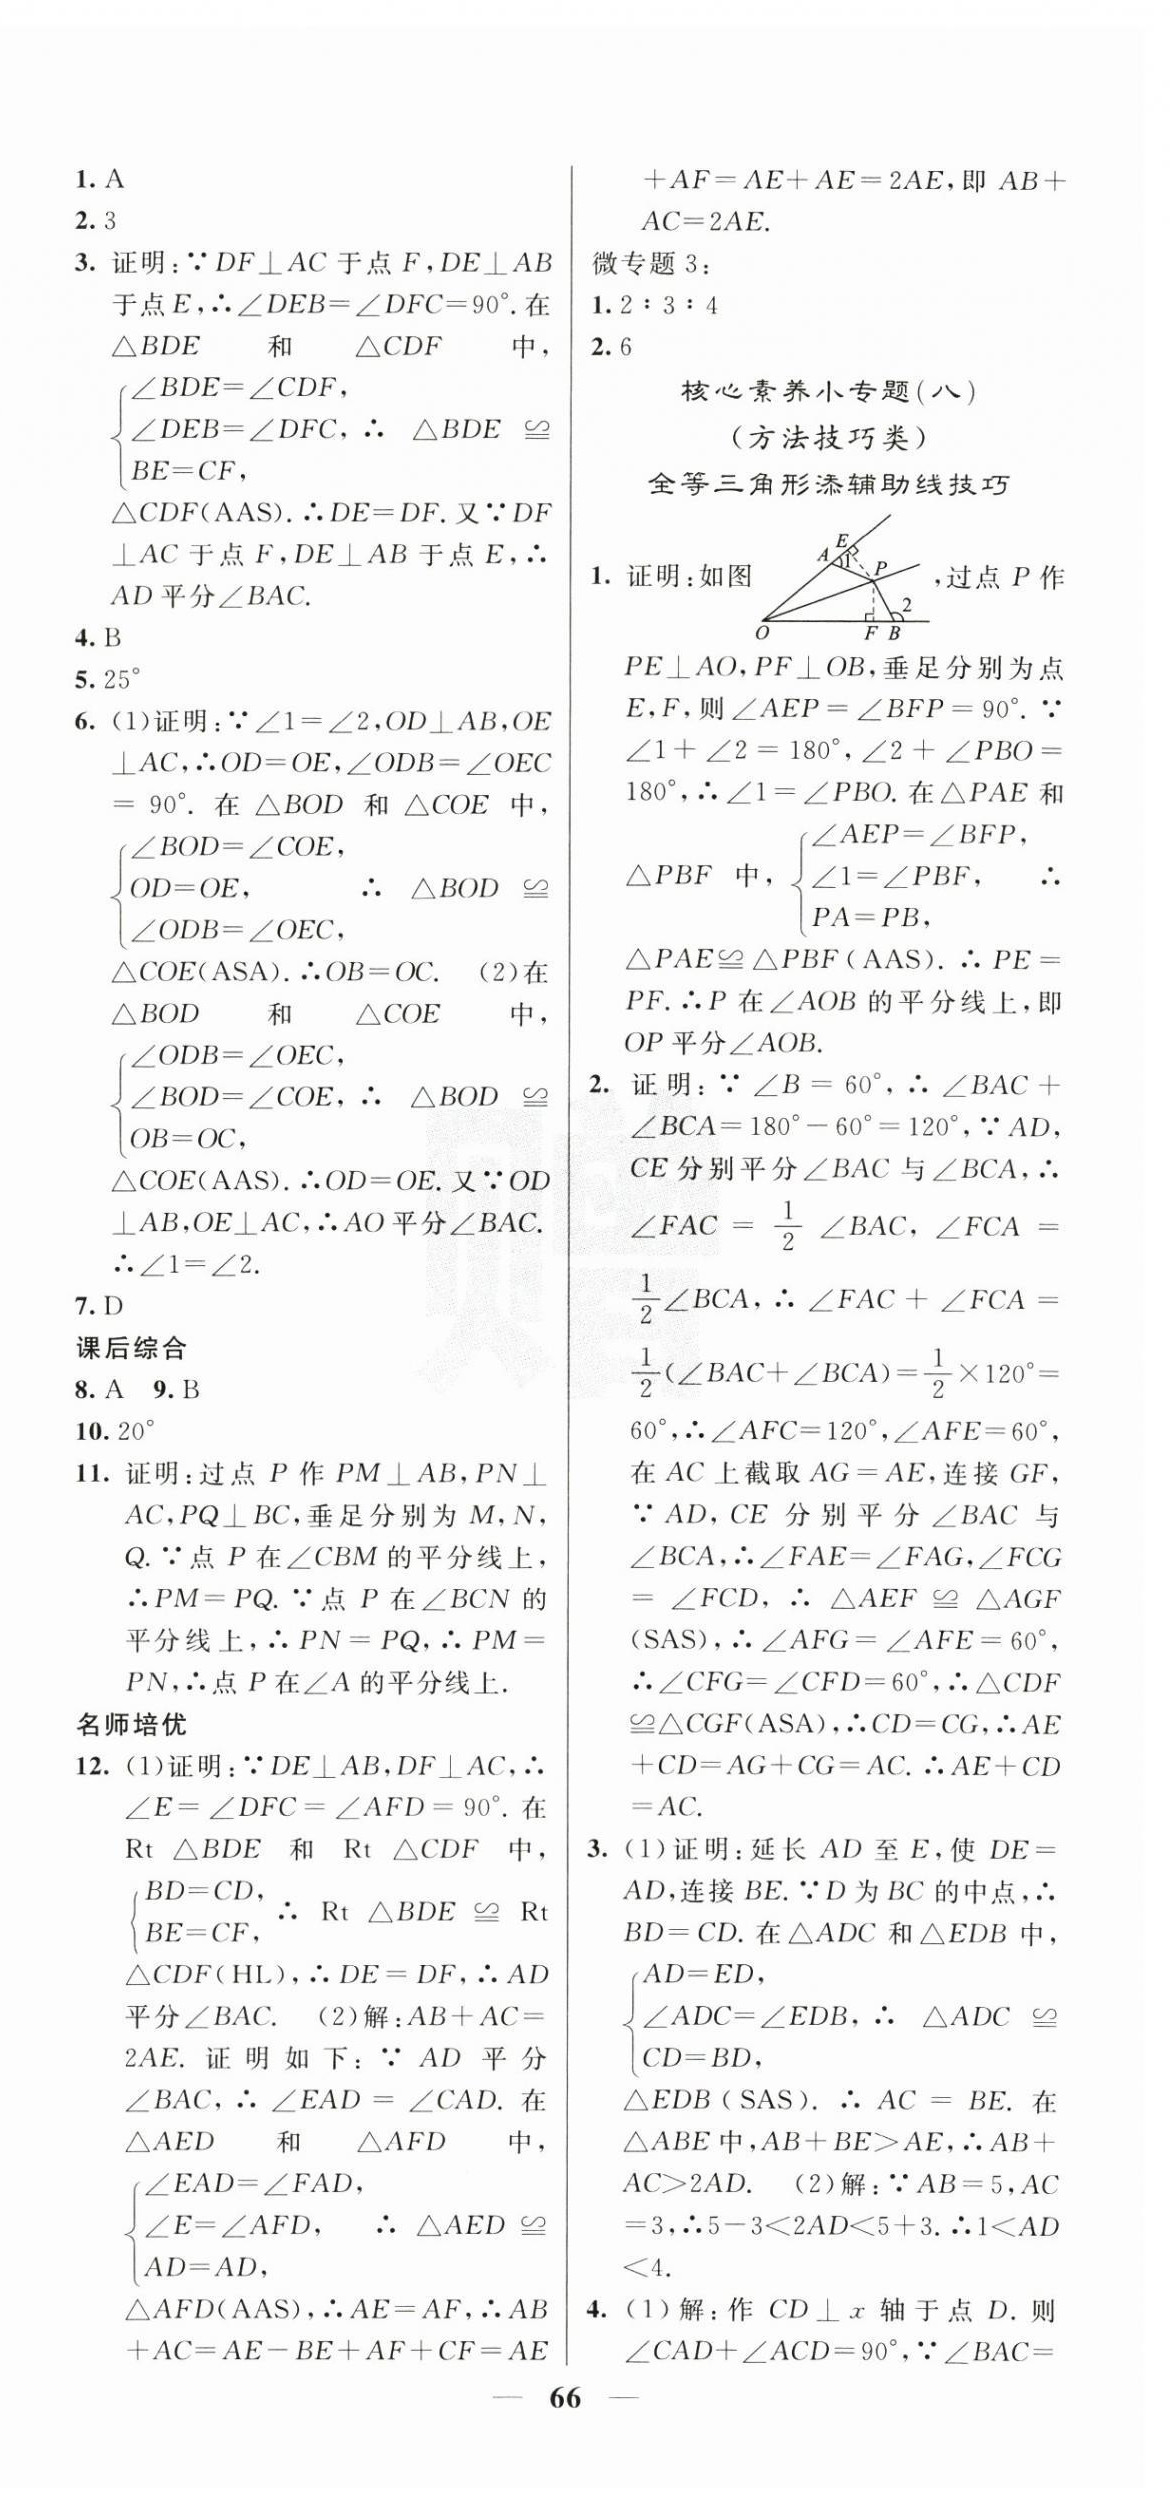 1. A
2. 3
3. 证明:∵DF⊥AC于点F,DE⊥AB
于点E,∴∠DEB=∠DFC=90°.在
△BDE 和 △CDF 中,
∠BDE=∠CDF,
∠DEB=∠DFC, ∴ △BDE ≌
BE=CF,
△CDF(AAS).∴DE=DF.又∵DF
⊥AC于点F,DE⊥AB于点E,∴
AD平分∠BAC.
4. B
5. 25°
6. (1)证明:∵∠1=∠2,OD⊥AB,OE
⊥AC,∴OD=OE,∠ODB=∠OEC
=90°.在△BOD和△COE中,
∠BOD=∠COE,
OD=OE, ∴ △BOD ≌
∠ODB=∠OEC,
△COE(ASA).∴OB=OC. (2)在
△BOD 和 △COE 中,
∠ODB=∠OEC,
∠BOD=∠COE, ∴ △BOD ≌
OB=OC,
△COE(AAS).∴OD=OE.又∵OD
⊥AB,OE⊥AC,∴AO平分∠BAC.
∴∠1=∠2.
7. D
课后综合
8. A 9. B
10. 20°
11. 证明:过点P作PM⊥AB,PN⊥
AC,PQ⊥BC,垂足分别为M,N,
Q.∵点P在∠CBM的平分线上,
∴PM=PQ.∵点P在∠BCN的
平分线上,∴PN=PQ,∴PM=
PN,∴点P在∠A的平分线上.
名师培优
12. (1)证明:∵DE⊥AB,DF⊥AC,∴
∠E=∠DFC=∠AFD=90°.在
Rt△BDE和Rt△CDF中,
BD=CD,
∴ Rt △BDE ≌ Rt
BE=CF,
△CDF(HL),∴DE=DF,∴AD
平分∠BAC. (2)解:AB+AC=
2AE.证明如下:∵AD平分
∠BAC,∴∠EAD=∠CAD.在
△AED 和 △AFD 中,
∠EAD=∠FAD,
∠E=∠AFD, ∴ △AED ≌
AD=AD,
△AFD(AAS),∴AE=AF,∴AB
+AC=AE-BE+AF+CF=AE
+AF=AE+AE=2AE,即AB+
AC=2AE.
微专题3:
1. 2∶3∶4
2. 6
核心素养小专题(八)
(方法技巧类)
全等三角形添辅助线技巧
1. 证明:如图 ,过点P作
E
A 1 P
2
O F B
PE⊥AO,PF⊥OB,垂足分别为点
E,F,则∠AEP=∠BFP=90°.∵
∠1+∠2=180°,∠2+∠PBO=
180°,∴∠1=∠PBO.在△PAE和
∠AEP=∠BFP,
△PBF中, ∠1=∠PBF, ∴
PA=PB,
△PAE≌△PBF(AAS).∴PE=
PF.∴P在∠AOB的平分线上,即
OP平分∠AOB.
2. 证明:∵∠B=60°,∴∠BAC+
∠BCA=180°-60°=120°,∵AD,
CE分别平分∠BAC与∠BCA,∴
∠FAC=1/2∠BAC,∠FCA=
1/2∠BCA,∴∠FAC+∠FCA=
1/2(∠BAC+∠BCA)=1/2×120°=
60°,∴∠AFC=120°,∠AFE=60°,
在AC上截取AG=AE,连接GF,
∵AD,CE分别平分∠BAC与
∠BCA,∴∠FAE=∠FAG,∠FCG
=∠FCD,∴△AEF≌△AGF
(SAS),∴∠AFG=∠AFE=60°,
∴∠CFG=∠CFD=60°,∴△CDF
≌△CGF(ASA),∴CD=CG,∴AE
+CD=AG+CG=AC.∴AE+CD
=AC.
3. (1)证明:延长AD至E,使DE=
AD,连接BE.∵D为BC的中点,∴
BD=CD.在△ADC和△EDB中,
AD=ED,
∠ADC=∠EDB, ∴ △ADC ≌
CD=BD,
△EDB(SAS).∴AC=BE.在
△ABE中,AB+BE>AE,∴AB+
AC>2AD. (2)解:∵AB=5,AC
=3,∴5-3<2AD<5+3.∴1<AD
<4.
4. (1)解:作CD⊥x轴于点D.则
∠CAD+∠ACD=90°,∵∠BAC=
— 66 —